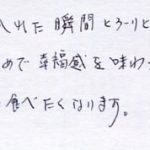 入れた瞬間とろーりと
めで幸福感を味わ
食べたくなります。